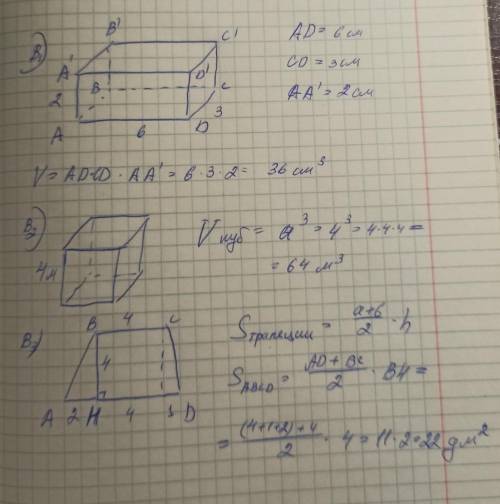 B₁)
B'
C'
A'
D'
B
C
2
A
6
D
3
AD = 6 см
CD = 3 см
AA' = 2 см
V = AD·CD · AA' = 6 · 3 · 2 = 36 см³
B₂)
4м
Vкуб = a³ = 4³ = 4·4·4 =
= 64 м³
B₃)
B 4 C
4
A 2 H 4 1 D
Sтрапеции = a+b/2 · h
SABCD = AD + BC/2 · BH =
= (4+1+2)+4/2 · 4 = 11·2=22 дм²